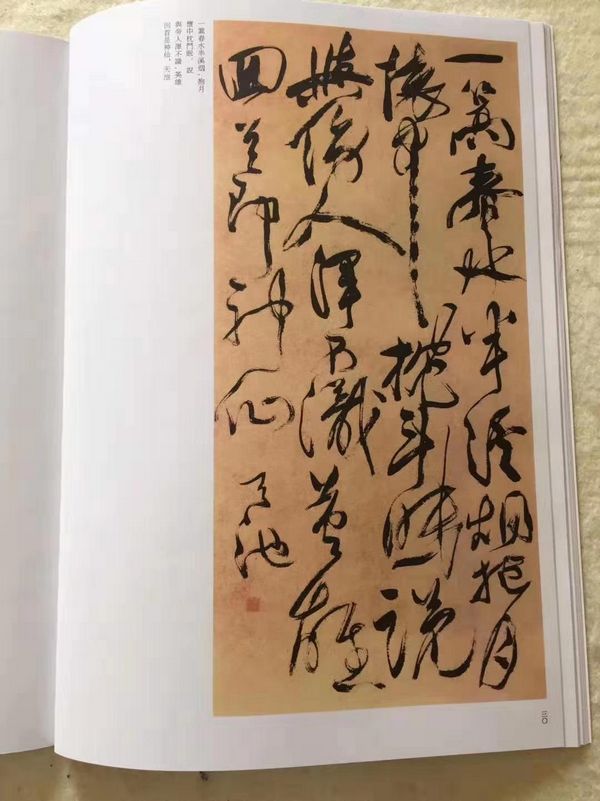 一篙春水半溪烟抱月
懷中枕斗眠說
與傍人渾不識英雄
回首即神仙 天池
一篙春水半溪烟，抱月
懷中枕鬥眠。說
與旁人渾不識，英雄
回首是神仙。天池
三〇